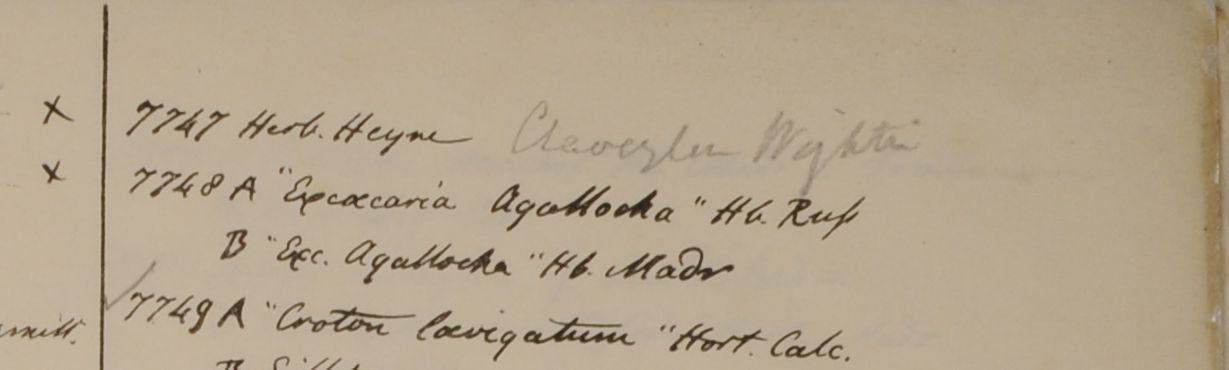 x 7747 Herb. Heyne Wightii
x 7748 A "Excæcaria Agallocha" Hb. Russ
B "Exc. Agallocha" Hb. Madr
7749 A "Croton lævigatum" Hort. Calc.